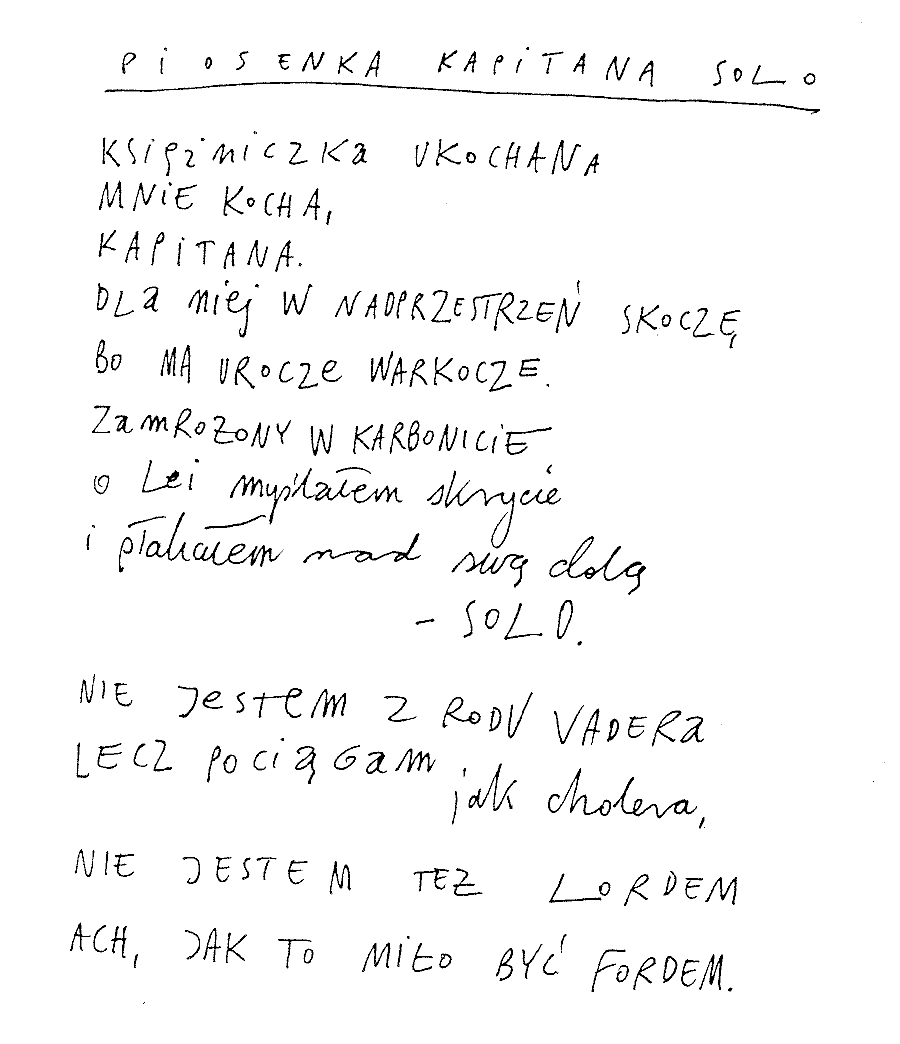 PIOSENKA KAPITANA SOLO
KSIĘŻNICZKA UKOCHANA
MNIE KOCHA,
KAPITANA.
DLA NIEJ W NADPRZESTRZEŃ SKOCZĘ
BO MA UROCZE WARKOCZE.
ZAMROŻONY W KARBONICIE
o Lei myślałem skrycie
i płakałem nad swą dolą
- SOLO.
NIE JESTEM Z RODU VADERA
LECZ POCIĄGAM jak cholera,
NIE JESTEM TEŻ LORDEM
ACH, JAK TO MIŁO BYĆ FORDEM.